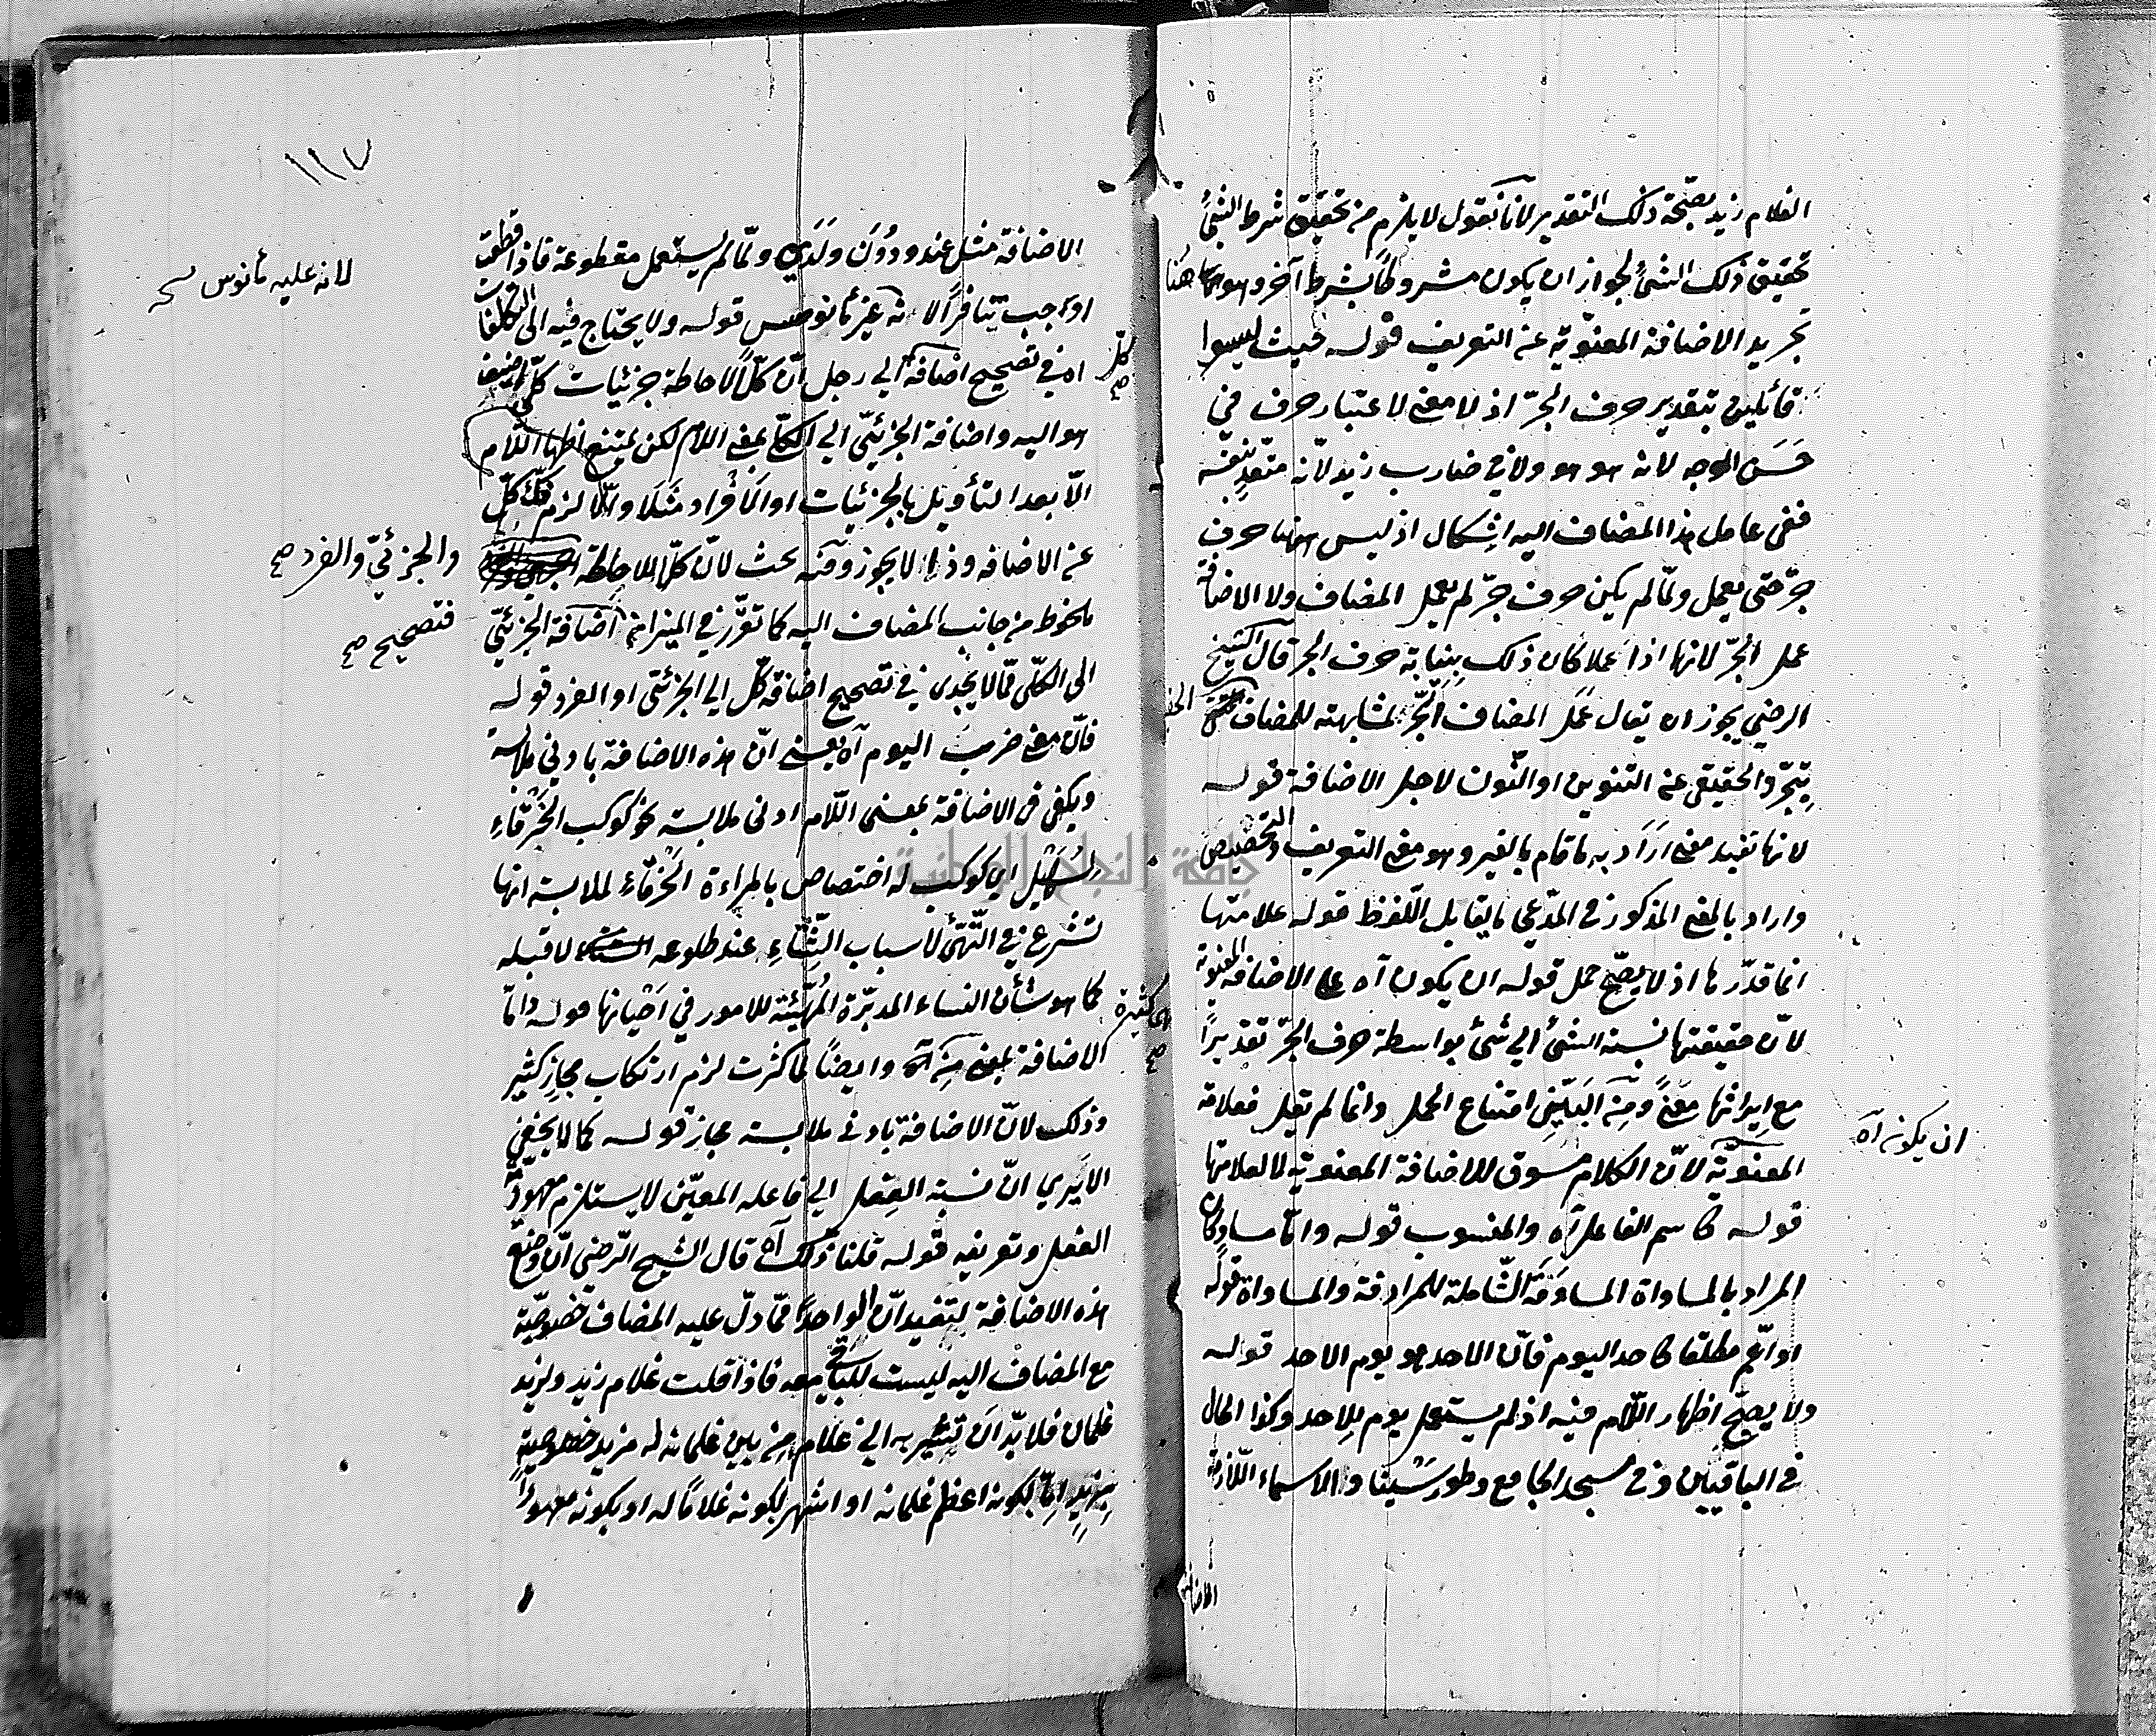 الغلام زيد بصحّة ذلك التقدير لانا نقول لا يلزم من تحقيق شرط الشئ
تحقيق ذلك الشئ لجواز ان يكون مشروطًا بشرط آخر وهو هنا
تجريد الاضافة المعنويّة عن التعريف قوله حيث ليسوا
قائلين بتقدير حرف الجرّ اذ لا معنى لاعتبار حرف في
حَسَن الوجه لانه هو هو ولا في ضارب زيد لانّه متعدٍّ بنفسه
ففى عامل هذا المضاف اليه اشكال اذ ليس ههنا حرف
جرّ حتى يعمل ولمّا لم يكن حرف جرّ لم يعمل المضاف ولا الاضافة
عمل الجرّ لانها اذا عملا كان ذلك بنيابة حرف الجر قال الشيخ
الرضي يجوز ان يقال عمل المضاف الجرّ لمشابهته للمضاف
بتجرّد الحقيقى عن التنوين او النّون لاجل الاضافة قوله
لانها تفيد معنى اراد به ما قام بالغير وهو معنى التعريف والتخصيص
واراد بالمعنى المذكور في المدّعى ما يقابل اللّفظ قوله علامتها
انما قدّرها اذ لا يصحّ حمل قوله ان يكون آه على الاضافة المعنوية
لانّ حقيقتها نسبة الشئ الى شئ بواسطة حرف الجرّ تقديرًا
مع ايراثها معنًى ومن البيّن امتناع الحمل وانما لم يقل فعلامة
ان يكون آه
المعنويّة لانّ الكلام مسوق للاضافة المعنويّة لا لعلامتها
قوله كاسم الفاعل آه والمنسوب قوله وامّا مساوٍ كان
المراد بالمساواة المساوقة الشّاملة للمرادفة والمساواة قوله
او اعم مطلقا كاحد اليوم فانّ الاحد هو يوم الاحد قوله
ولا يصحّ اظهار اللّام فيه اذ لم يستعمل يوم للاحد وكذا الحال
في الباقيين وفى مسجد الجامع وطور سينا والاسماء اللّازمة
الاضافة
١١٧
الاضافة مثل عند ودُوْنَ ولَدَي ولمّا لم يستعمل مقطوعة فاذا قطعت
لانه عليه مأنوس نسخه
اوجب تنافرًا لانه غير مأنوس قوله ولا يحتاج فيه الى التكلفات
اه في تصحيح اضافة الى رجل انّ كلًّا لاحاطة جزئيات كلّى اضيف
كلّ صح
هو اليه واضافة الجزئيّ الى الكلّي بمعنى اللّام لكن يمتنع اظهار اللّام
الّا بعد التأويل بالجزئيات او الافراد مثلا والّا لزم فكّ كلّ
عن الاضافه وذا لا يجوز وفيه بحث لانّ كلّا للاحاطة
والجزئيّ والفرد صح
ملحوظ من جانب المضاف اليه كما تقرّر في الميزان اضافة الجزئيّ
فتصحيح صح
الى الكلّى ممّا لا يجدى في تصحيح اضافة كلّ الى الجزئى او الفرد قوله
فانّ معنى ضرب اليوم آه يعنى انّ هذه الاضافة بادنى ملابسة
ويكفى فى الاضافة بمعنى اللّام ادنى ملابسة نحو كوكب الخَرْقاءِ
لسُهَيْل اى كوكب له اختصاص بالمراءة الخرقاء لملابسة انها
تشرع في التّهيّئ لاسباب الشّتاءِ عند طلوعه لا قبله
كما هو شأن النساء المدبّرة المُهيّئة للامور في احيانها قوله وامّا
الاضافة بمعنى من آه وايضًا لمّا كثرت لزم ارتكاب مجازٍ كثير
وذلك لانّ الاضافة بادنى ملابسة مجاز قوله كما لا يخفى
الا يرى انّ نسبة الفعل الى فاعله المعيّن لا يستلزم معهوديّة
الفعل وتعريفه قوله قلنا ذلك آه قال الشيخ الرّضي انّ وضع
هذه الاضافة لتفيد انّ لواحد ممّا دلّ عليه المضاف خصوصيّة
مع المضاف اليه ليست للباقى معه فاذا قلت غلام زيد ولزيد
غلمان فلا بدّ ان تشير به الى غلام من بين غلمانه له مزيد خصوصيّة
بزيد امّا لكونه اعظم غلمانه او اشهر بكونه غلامًا له او بكونه معهودًا
جامعة النجاح الوطنية